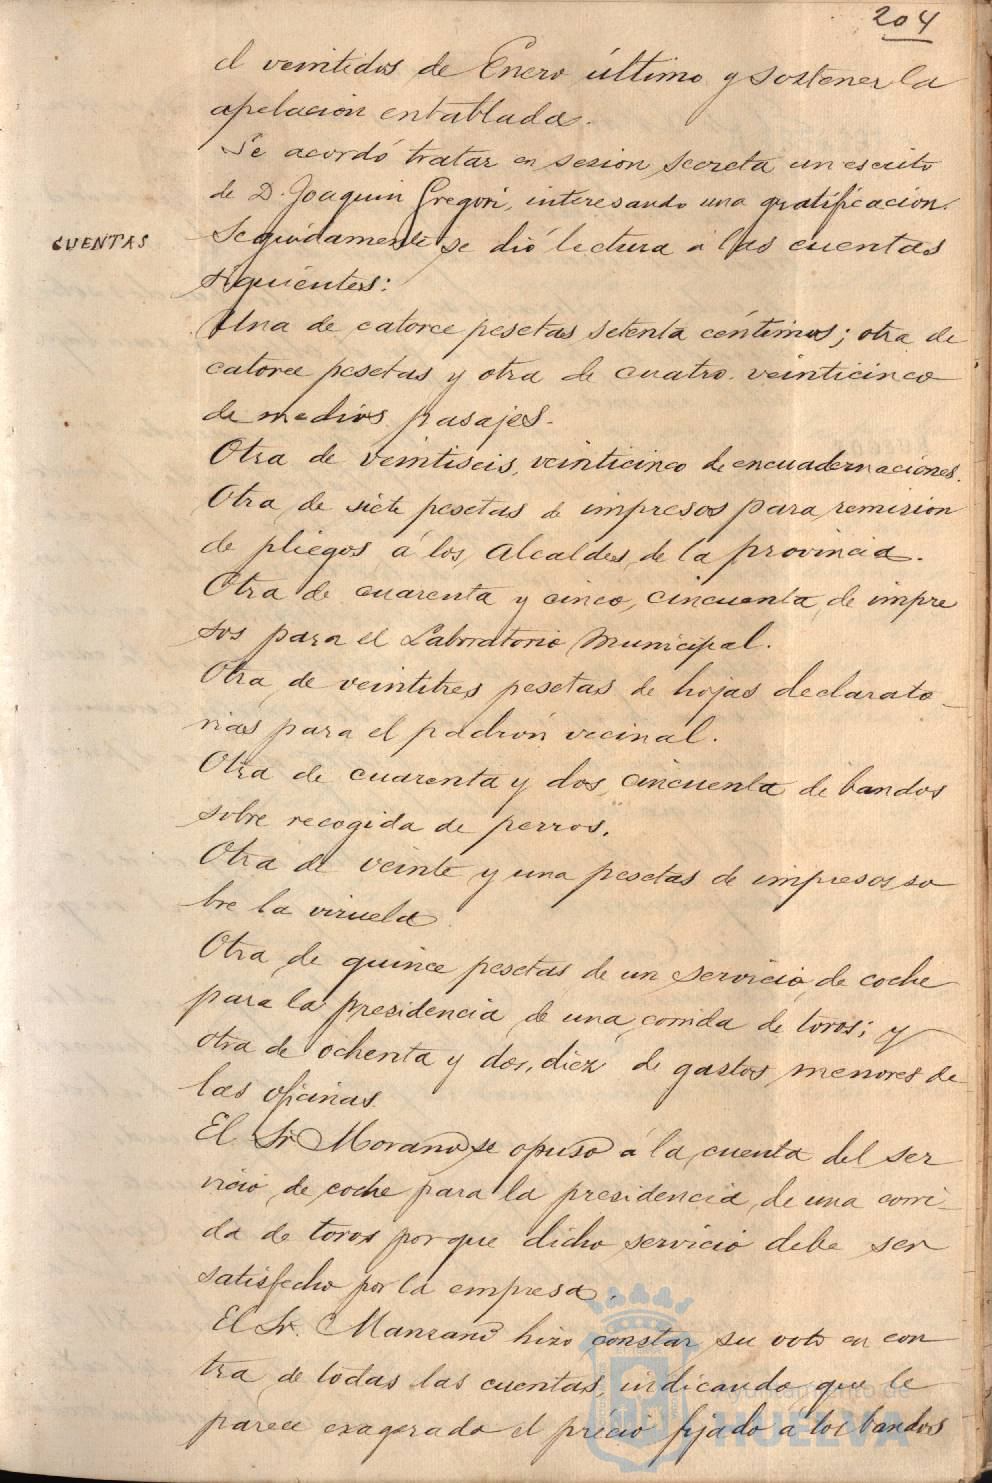 204
el veintidos de Enero último y sostener la
apelación entablada.
Se acordó tratar en sesión secreta un escrito
de D. Joaquin Gregori, interesando una gratificacion.
CUENTAS
Seguidamente se dió lectura á las cuentas
siguientes:
Una de catorce pesetas setenta céntimos; otra de
catorce pesetas y otra de cuatro veinticinco
de medios pasajes.
Otra de veintiseis, veinticinco de encuadernaciones.
Otra de siete pesetas de impresos para remision
de pliegos á los Alcaldes de la provincia.
Otra de cuarenta y cinco, cincuenta de impre
sos para el Laboratorio Municipal.
Otra de veintitres pesetas de hojas declarato-
rias para el padrón vecinal.
Otra de cuarenta y dos, cincuenta de bandos
sobre recogida de perros.
Otra de veinte y una pesetas de impresos so
bre la viruela
Otra de quince pesetas de un servicio de coche
para la presidencia de una corrida de toros; y
otra de ochenta y dos, diez de gastos menores de
las oficinas
El Sr Morano se opuso á la cuenta del ser
vicio de coche para la presidencia de una corri-
da de toros porque dicho servicio debe ser
satisfecho por la empresa.
El Sr. Manzano hizo constar su voto en con
tra de todas las cuentas, indicando que le
parece exagerado el precio fijado á los bandos
Ayuntamiento de
HUELVA